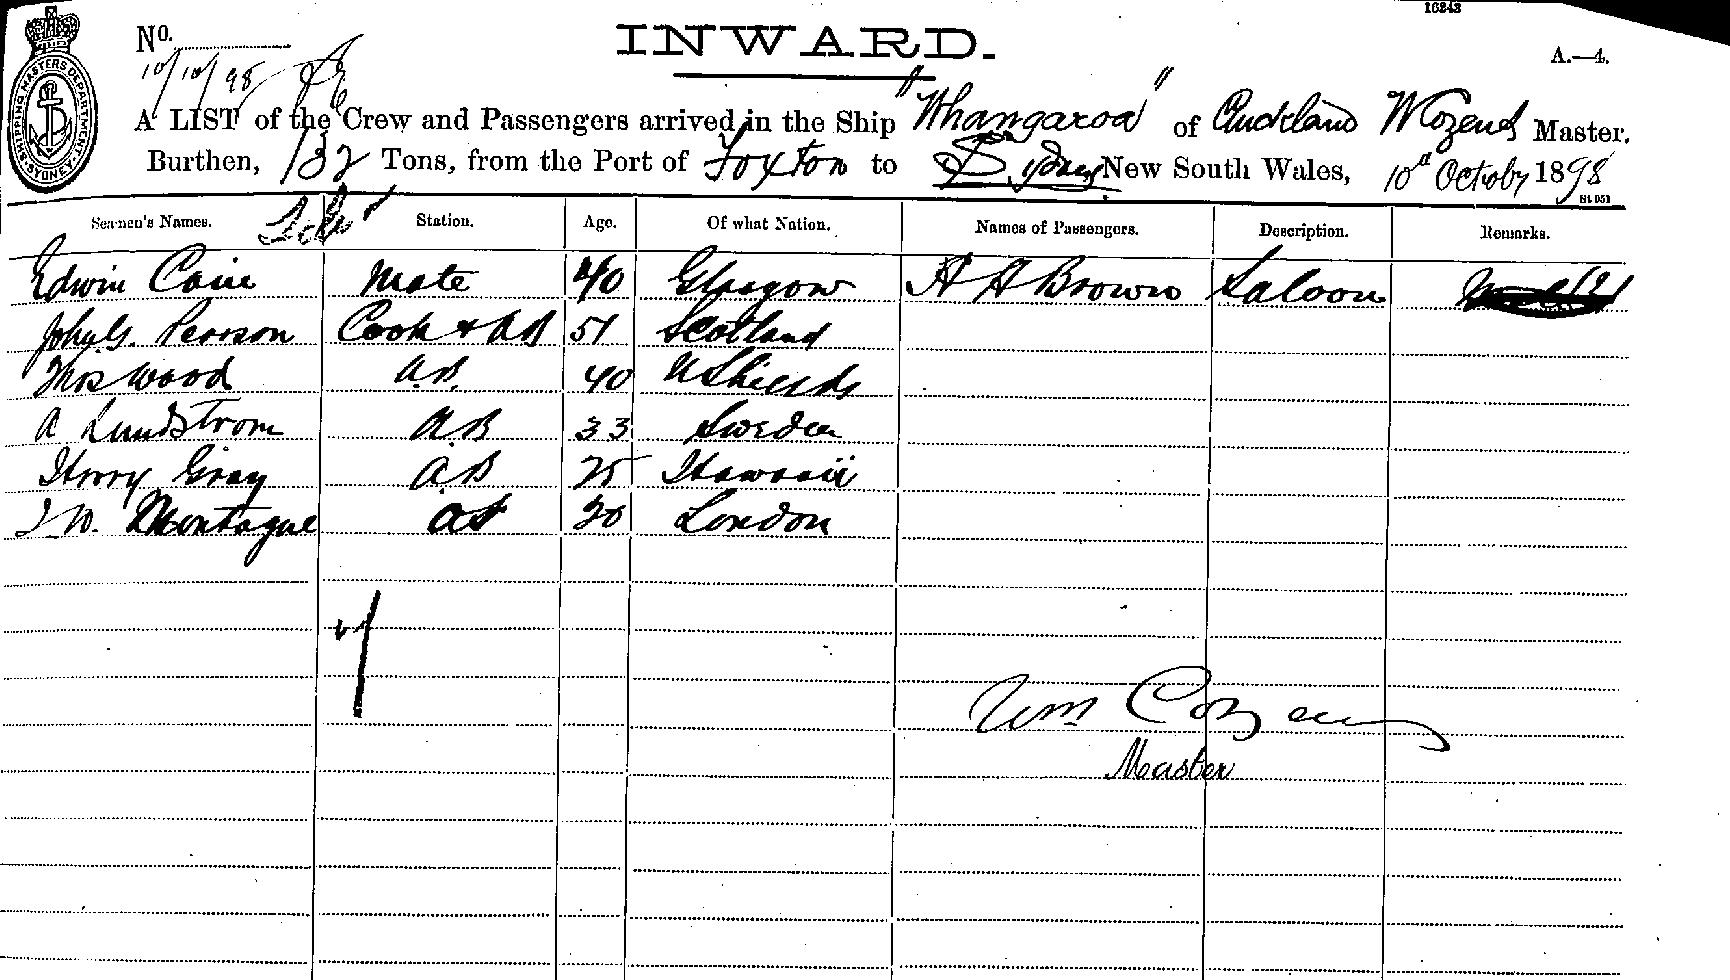 16243
No.
INWARD.
A.—4.
10/10/98
A LIST of the Crew and Passengers arrived in the Ship "Whangaroa" of Auckland W Cozens Master.
Burthen, 132 Tons, from the Port of Foxton to Sydney New South Wales, 10th October 1898
SHIPPING MASTERS DEPARTMENT SYDNEY
Seamen's Names. Station. Age. Of what Nation. Names of Passengers. Description. Remarks.
Edwin Caire Mate 40 Glasgow A H Brown Saloon
John G. Pearson Cook & AB 51 Scotland
Thos Wood A.B. 40 N Shields
A Lundstrom A.B 33 Sweden
Harry Gray A.B 25 Hawaii
J W. Montague OS 20 London
Wm Cozens
Master